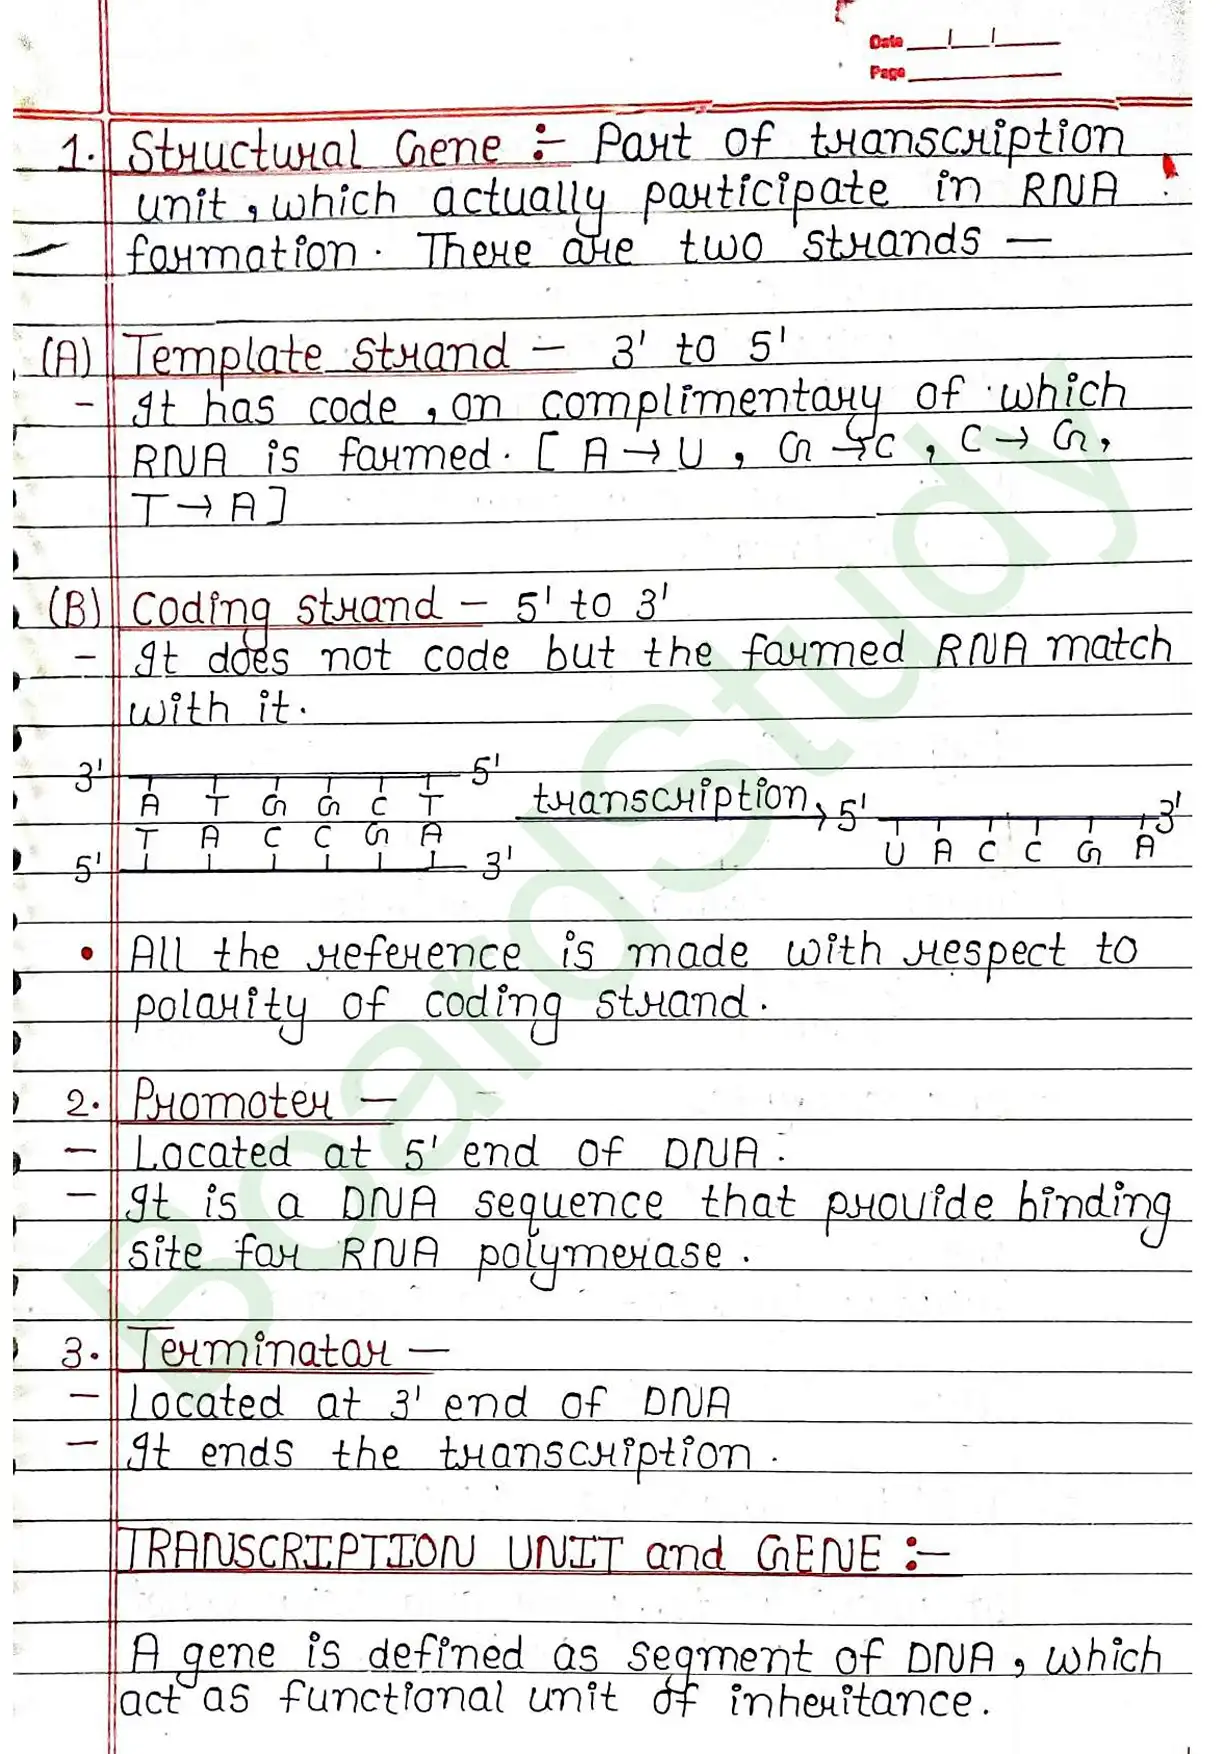 Date
Page
1. Structural Gene :- Part of transcription
unit, which actually participate in RNA
formation. There are two strands —
(A) Template strand — 3' to 5'
- It has code, on complimentary of which
RNA is formed. [ A → U , G → C , C → G,
T → A ]
(B) Coding strand — 5' to 3'
- It does not code but the formed RNA match
with it.
3' 5'
A T G G C T
transcription → 5' 3'
T A C C G A
U A C C G A
5' 3'
• All the reference is made with respect to
polarity of coding strand.
2. Promoter —
- Located at 5' end of DNA.
- It is a DNA sequence that provide binding
site for RNA polymerase.
3. Terminator —
- Located at 3' end of DNA
- It ends the transcription.
TRANSCRIPTION UNIT and GENE :-
A gene is defined as segment of DNA, which
act as functional unit of inheritance.
BoardStudy